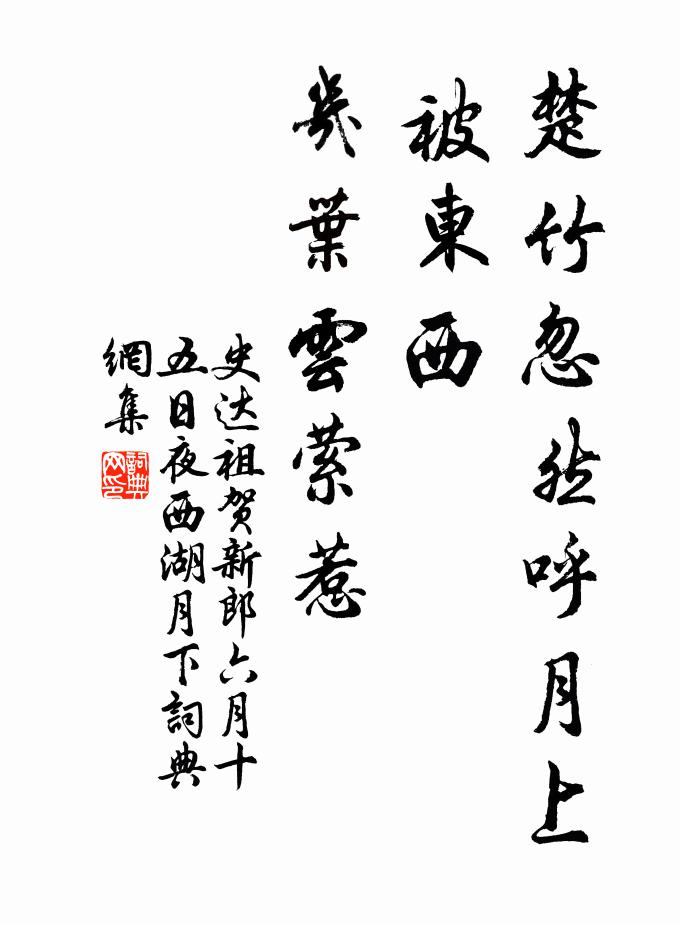 楚竹忽然呼月上
被東西
幾葉雲萦惹
史达祖贺新郎六月十
五日夜西湖月下詞典
網集
詞典
网印